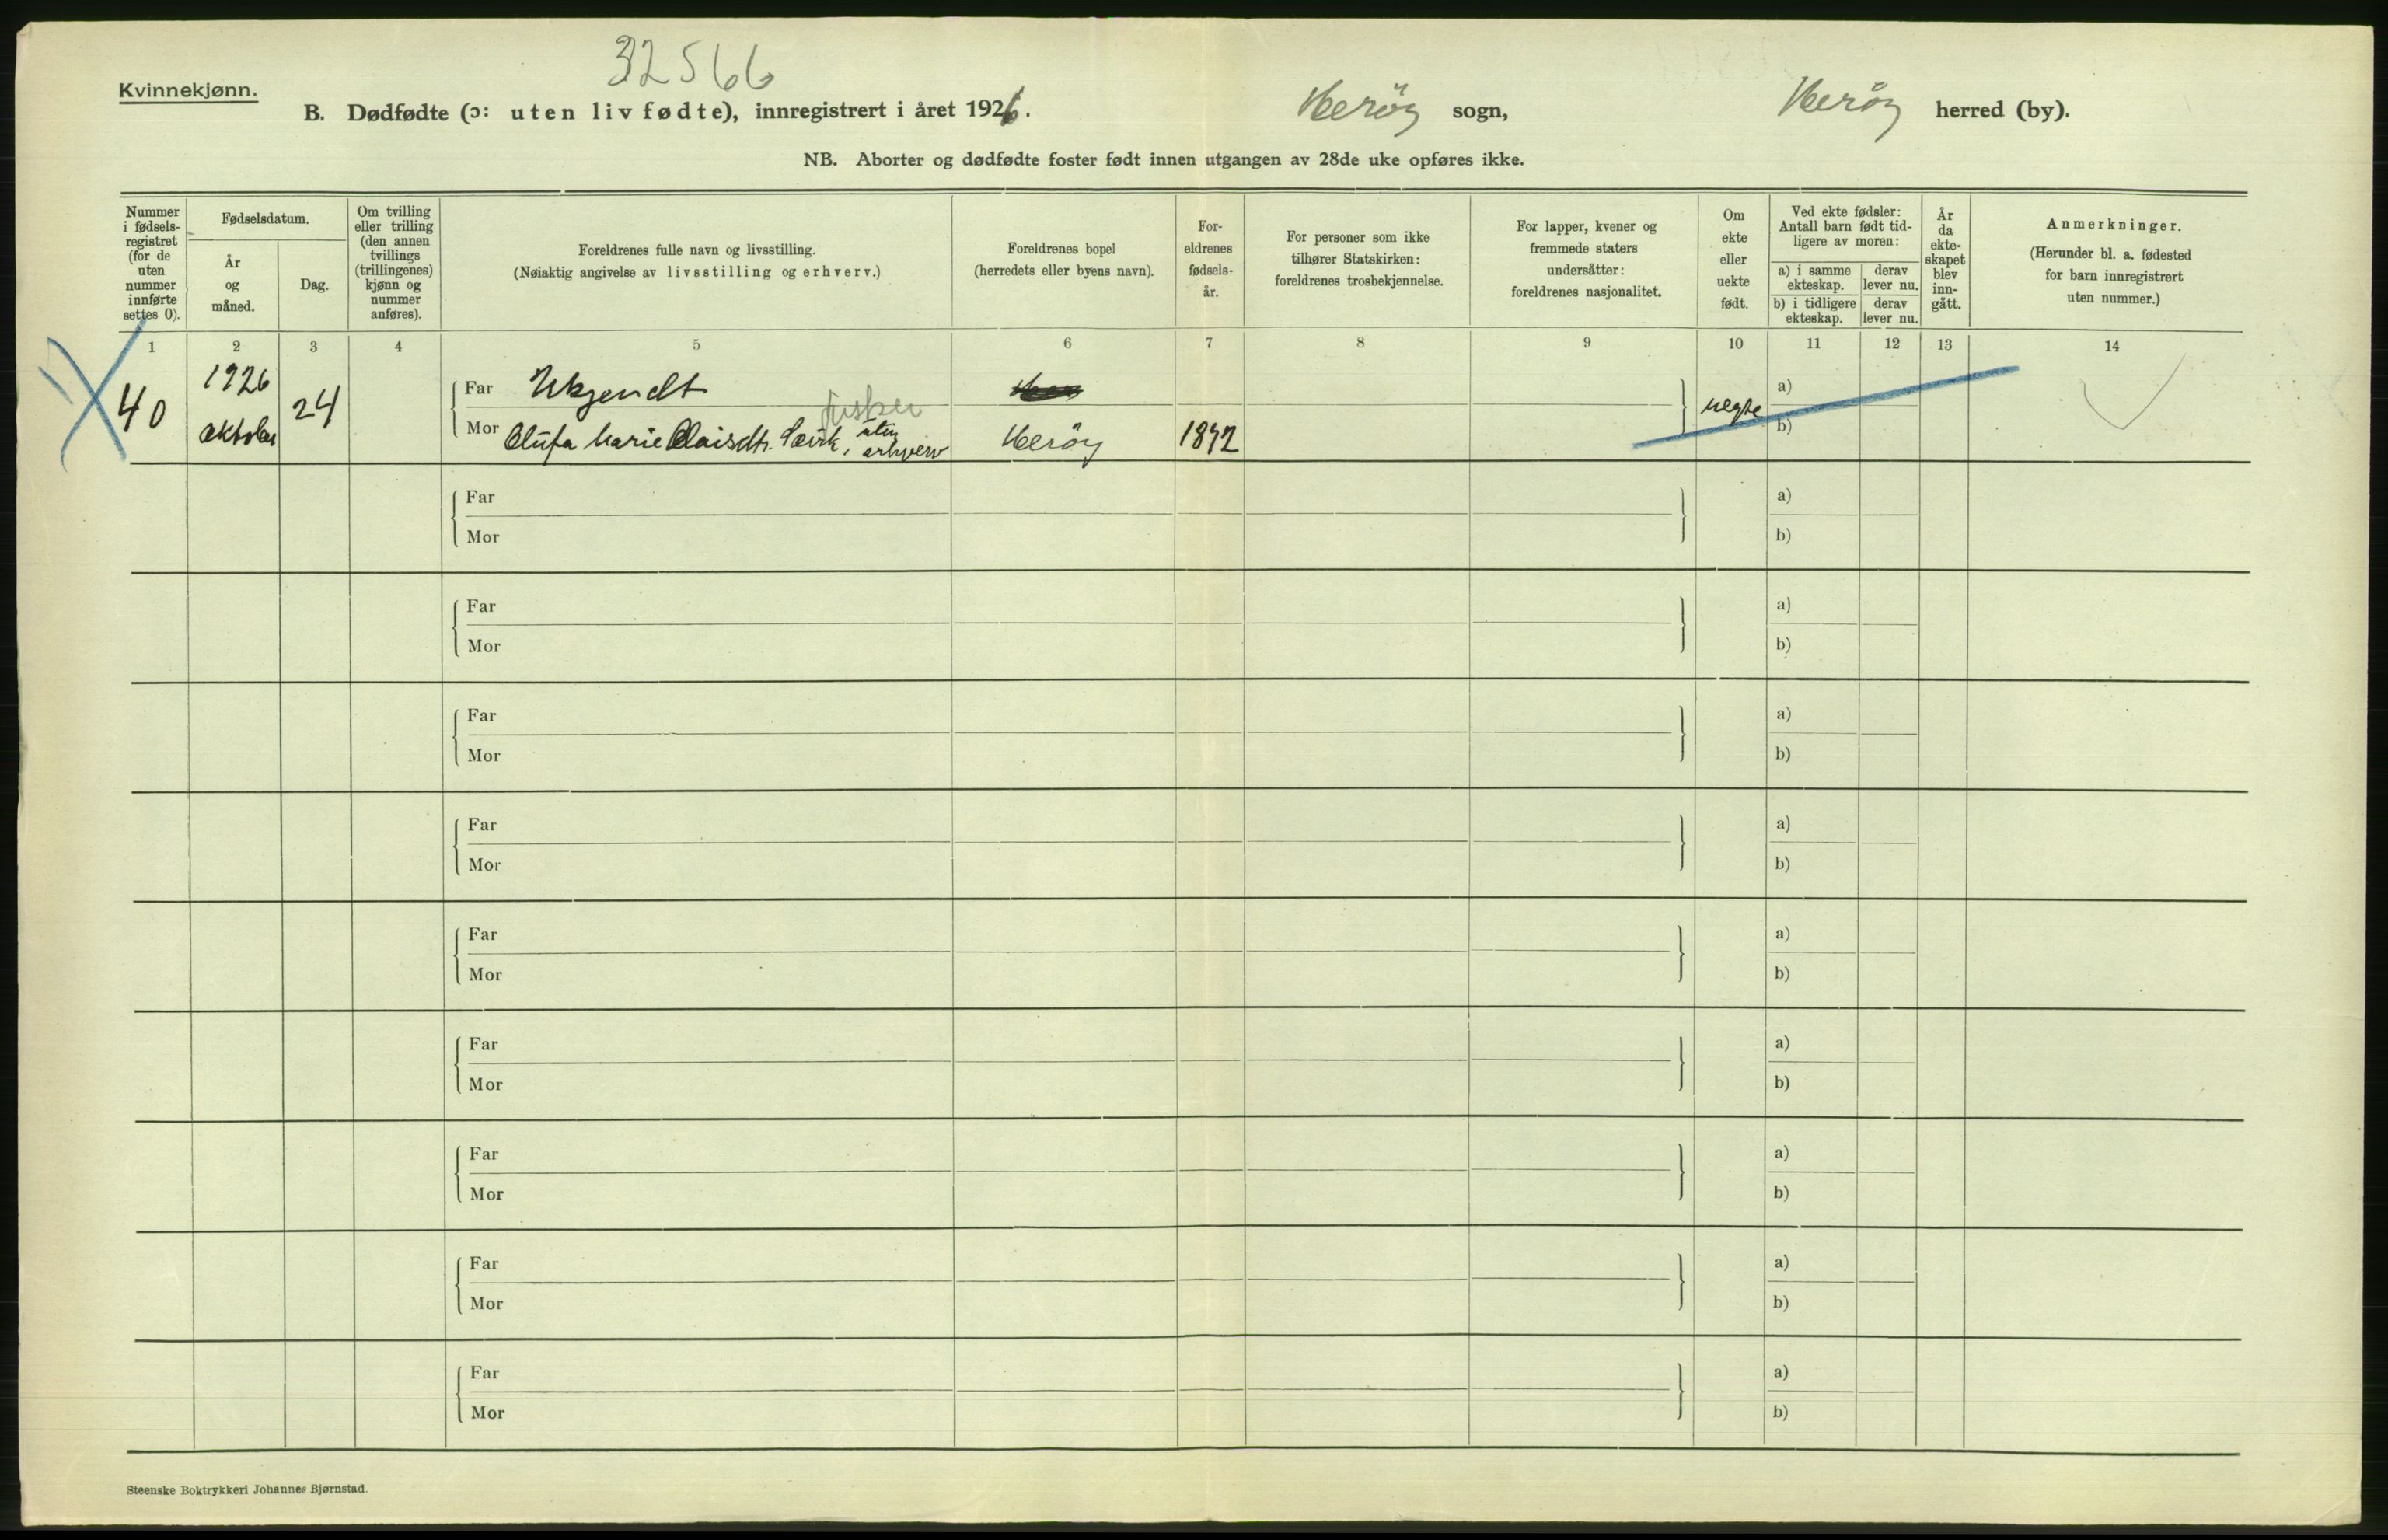 32566
Kvinnekjønn.
B. Dødfødte (ɔ: uten liv fødte), innregistrert i året 1926.
Herøy sogn,
Herøy herred (by).
NB. Aborter og dødfødte foster født innen utgangen av 28de uke opføres ikke.
Nummer
i fødsels-
registret
(for de
uten
nummer
innførte
settes 0).
Fødselsdatum.
År
og
måned.
Dag.
Om tvilling
eller trilling
(den annen
tvillings
(trillingenes)
kjønn og
nummer
anføres).
Foreldrenes fulle navn og livsstilling.
(Nøiaktig angivelse av livsstilling og erhverv.)
Foreldrenes bopel
(herredets eller byens navn).
For-
eldrenes
fødsels-
år.
For personer som ikke
tilhører Statskirken:
foreldrenes trosbekjennelse.
For lapper, kvener og
fremmede staters
undersåtter:
foreldrenes nasjonalitet.
Om
ekte
eller
uekte
født.
Ved ekte fødsler:
Antall barn født tid-
ligere av moren:
a) i samme
ekteskap.
derav
lever nu.
b) i tidligere
ekteskap.
derav
lever nu.
År
da
ekte-
skapet
blev
inn-
gått.
Anmerkninger.
(Herunder bl. a. fødested
for barn innregistrert
uten nummer.)
1 2 3 4 5 6 7 8 9 10 11 12 13 14
40
1926
oktober
24
Far Ukjendt
Mor Olufa Marie Olaisdtr. , uten
erhverv
Herøy
1892
uegte
a)
b)
Far a)
Mor b)
Far a)
Mor b)
Far a)
Mor b)
Far a)
Mor b)
Far a)
Mor b)
Far a)
Mor b)
Far a)
Mor b)
Far a)
Mor b)
Far a)
Mor b)
Steenske Boktrykkeri Johannes Bjørnstad.